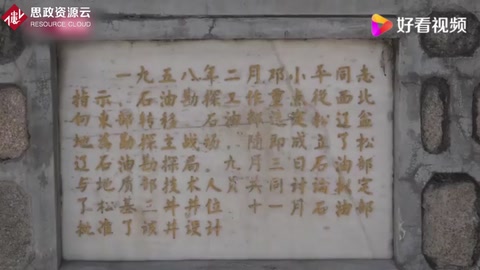 思政资源云
RESOURCE CLOUD
好看视频
一九五八年二月邓小平同志
指示、石油勘探工作重点从西北
向东部转移 石油部选定松辽盆
地为勘探主战场、随即成立了松
辽石油勘探局、九月三日石油部
与地质部技术人员共同讨论拟定
了松基三井井位 十一月石油部
批准了该井设计